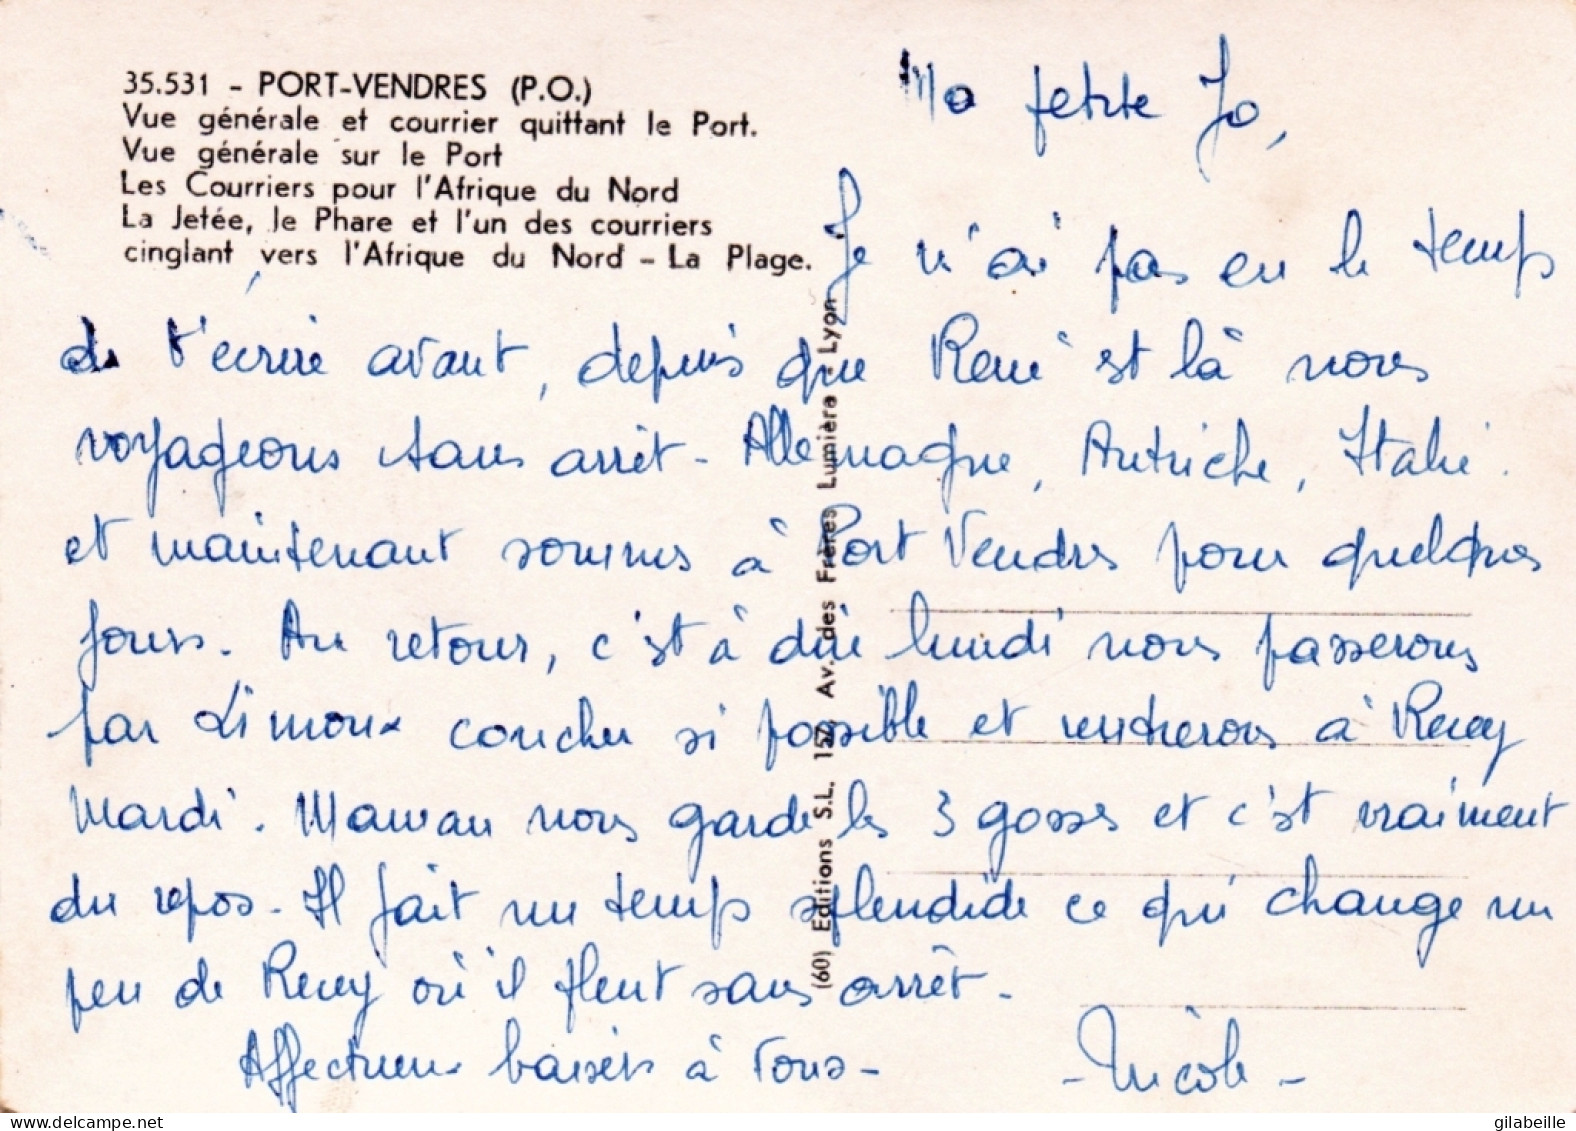 35.531 - PORT-VENDRES (P.O.)
Vue générale et courrier quittant le Port.
Vue générale sur le Port
Les Courriers pour l'Afrique du Nord
La Jetée, le Phare et l'un des courriers
cinglant vers l'Afrique du Nord - La Plage.
Ma petite Jo,
Je n'ai pas eu le temps
de t'écrire avant, depuis que René est là nous
voyageons sans arrêt - Allemagne, Autriche, Italie.
et maintenant sommes à Port Vendres pour quelques
jours. Au retour, c'est à dire lundi nous passerons
par Limoux coucher si possible et rentrerons à
Mardi. Maman nous garde les 3 gosses et c'est vraiment
du repos - Il fait un temps splendide ce qui change un
peu de où il pleut sans arrêt -
Affectueux baisers à Tous -
- Nicole -
(60) Editions S.L. Av. des Frères Lumière - Lyon
gilabeille
www.delcampe.net